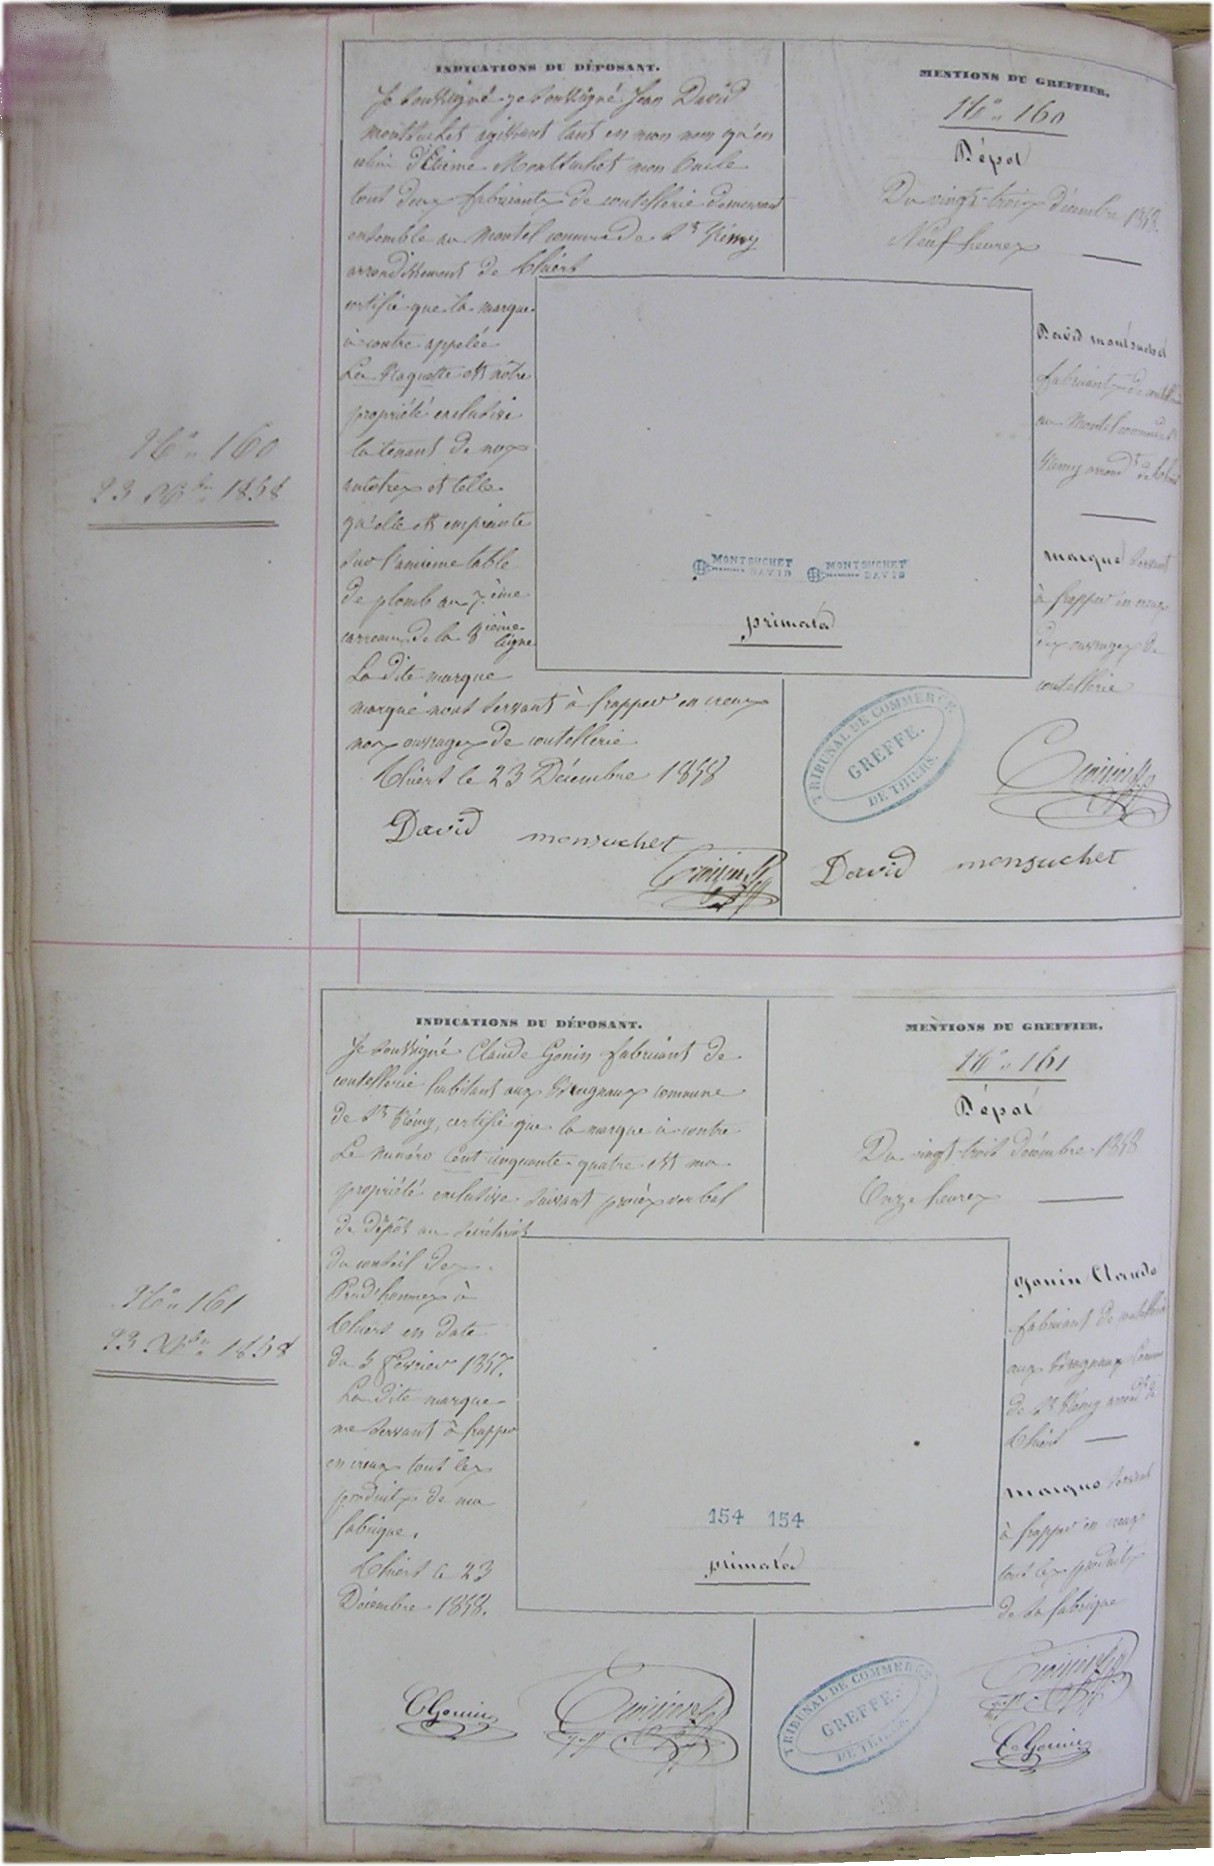 N° 160
23 Xbre 1858
INDICATIONS DU DÉPOSANT.
Je soussigné je soussigné Jean David
Montsuchet agissant tant en mon nom qu'en
celui d'Etienne Montsuchet mon Oncle
tout deux fabricants de coutellerie demeurant
ensemble au Montel commune de St Rémy
arrondissement de Thiers
certifie que la marque
ci contre appelée
La Raquette est nôtre
propriété exclusive
la tenant de nos
autres et telle
qu'elle est empreinte
sur l'ancienne table
de plomb au 7ième
carreau de la 8ième ligne
La dite marque
marque nous servant à frapper en creux
nos ouvrages de coutellerie
Thiers le 23 Décembre 1858
David monsuchet
MENTIONS DU GREFFIER.
N° 160
Dépot
Du vingt-trois décembre 1858.
Neuf heures
David montsuchet
fabricant de coutellerie
au Montel commune
Rémy arrondt de Thiers
marque servant
à frapper en creux
des ouvrages de
coutellerie
MONTSUCHET
DAVID
MONTSUCHET
DAVID
primata
TRIBUNAL DE COMMERCE
GREFFE.
DE THIERS.
David monsuchet
N° 161
23 Xbre 1858
INDICATIONS DU DÉPOSANT.
Je soussigné Claude Gonin fabricant de
coutellerie habitant aux commune
de St Rémy, certifie que la marque ci contre
Le numéro Cent cinquante quatre est ma
propriété exclusive suivant procès verbal
de dépôt au secrétariat
du conseil des
Prud'hommes à
Thiers en date
du 5 Février 1857.
La dite marque
me servant à frapper
en creux tout les
produits de ma
fabrique.
Thiers le 23
Décembre 1858.
CGonin
MENTIONS DU GREFFIER.
N° 161
Dépot
Du vingt-trois décembre 1858
Onze heures
gonin Claude
fabricant de coutellerie
aux
de St Rémy arrondt de
Thiers
marque servant
à frapper en creux
tout les produits
de sa fabrique
154 154
primata
TRIBUNAL DE COMMERCE
GREFFE.
DE THIERS.
CGonin